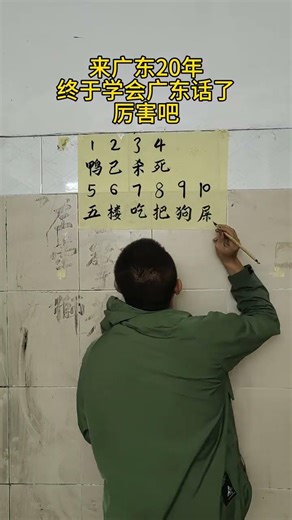 来广东20年
终于学会广东话了
厉害吧
1 2 3 4
鸭 己 杀 死
5 6 7 8 9 10
五 楼 吃 把 狗 屎